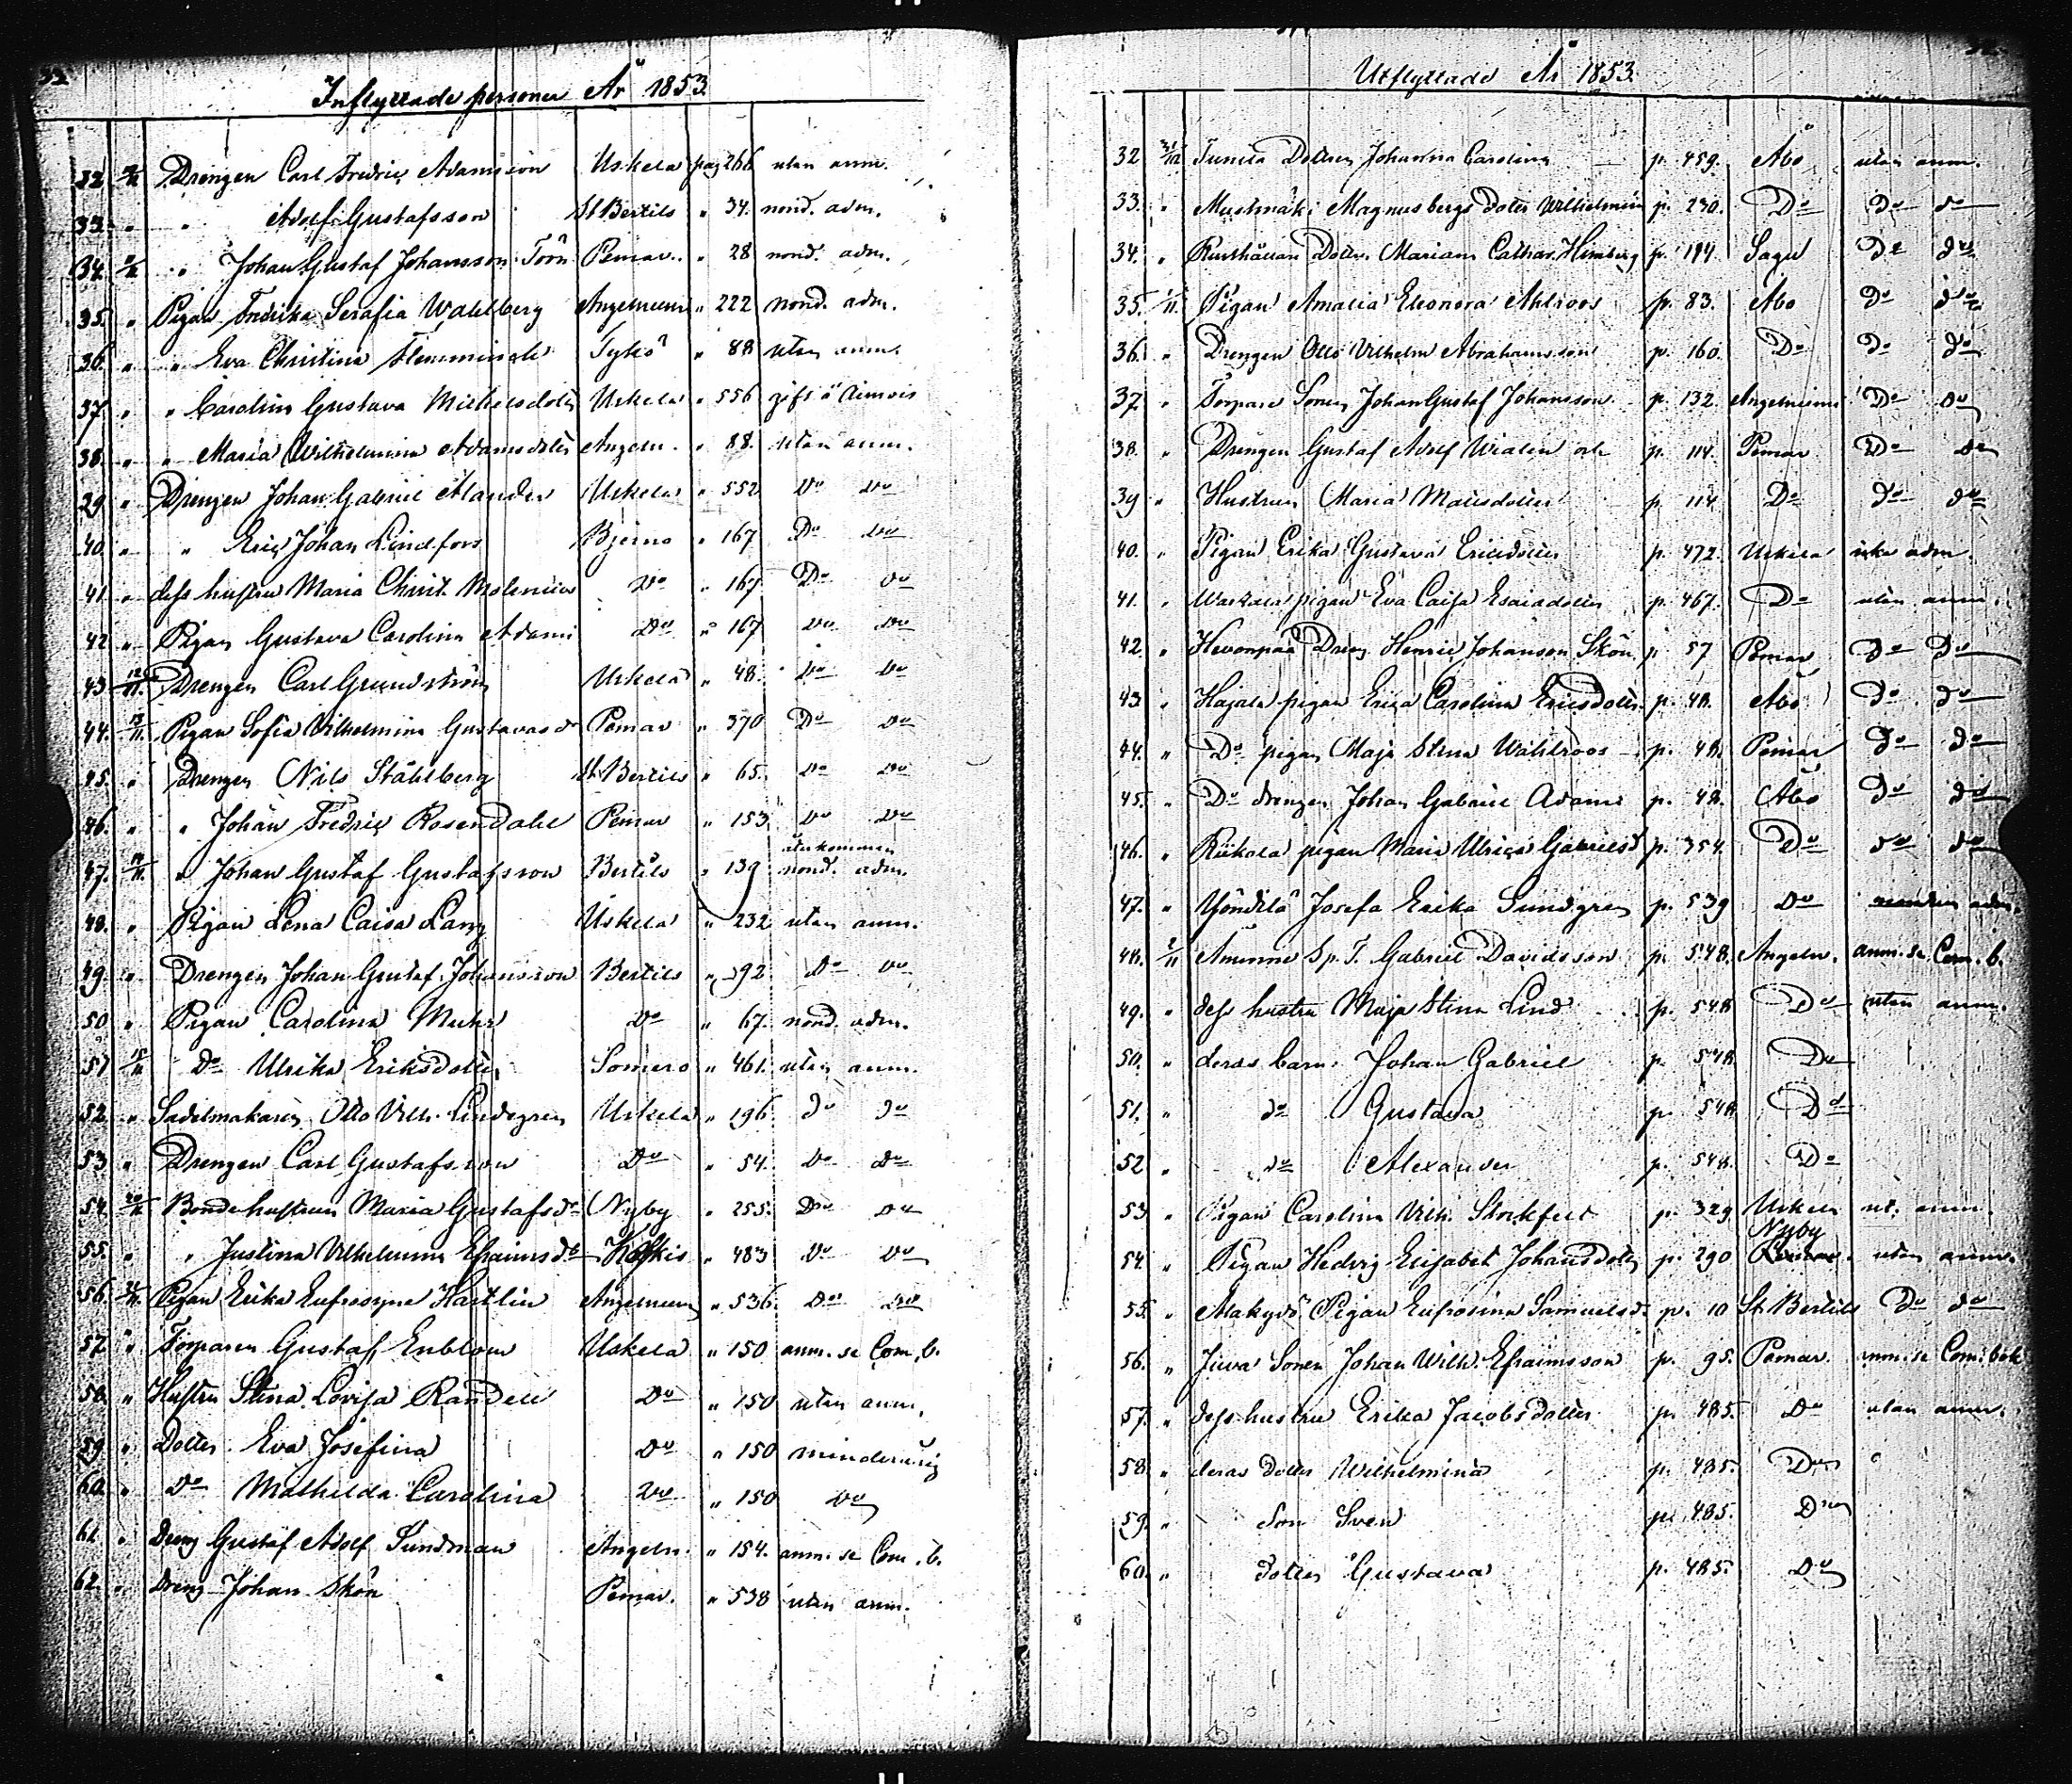 Inflyttade personer År 1853.
32. Drengen Carl Fredric Adamsson Uskela pag 266 utan anm.
33. " " Adolf Gustafsson St Bertils " 34. nond. adm.
34. " Johan Gustaf Johansson Pemar. " 28 nond. adm.
35. " Pigan Fredrika Serafia Wahlberg Angelniemi " 222 nond. adm.
36. " " Eva Christina Flemmich Tykö " 88 utan anm.
37. " " Carolina Gustava Michelsdoter Uskela " 556
38. " " Maria Wilhelmina Adamsdoter Angeln. " 88. utan anm.
39. " Drengen Johan Gabriel Alander Uskela " 552 Do Do
40. " " Eric Johan Lindfors Bjerno " 167 Do Do
41. " dess hustru Maria Christ. Molenius Do " 167 Do Do
42. " Pigan Gustava Carolina Adami Do " 167 Do Do
43. 12/11. Drengen Carl Grundström Uskela " 48. Do Do
44. 13/11. Pigan Sofia Vilhelmina Gustavasd Pemar " 370 Do Do
45. " Drengen Nils Ståhlberg St Bertils " 65. Do Do
46. " " Johan Fredric Rosendahl Pemar " 153 Do Do
återkommen
47. 14/11. " Johan Gustaf Gustafsson Bertils " 139 nond. adm.
48. " Pigan Lena Caisa Lang Uskela " 232 utan anm.
49. " Drengen Johan Gustaf Johansson Bertils " 92 Do Do
50 " Pigan Carolina Muhr Do " 67. nond. adm.
51 15/11 Do Ulrika Eriksdoter Somero " 461. utan anm.
52. " Sadelmakaren Otto Vilh. Lindegren Uskela " 196 Do Do
53 " Drengen Carl Gustafsson Do " 54. Do Do
54. 20/11 Bondehustrun Maria Gustafsdr Nyby " 255. Do Do
55. " " Justina Vilhelmina Efraimsdr Koskis " 483 Do Do
56. Pigan Erika Eufrosyne Hartlin Angelniemi " 536. Do Do
57. " Torparen Gustaf Enblom Uskela " 150 anm. se Com. b.
58. " Hustru Stina Lovisa Randell Do " 150 utan anm.
59. " Dotter Eva Josefina Do " 150 minderårig
60. " Do Mathilda Carolina Do " 150 Do
61. " Dreng Gustaf Adolf Sundman Angeln. " 154. anm. se Com. b.
62. " Dreng Johan Skön Pemar. " 538 utan anm.
Utflyttade År 1853.
32 Dottren Johanna Carolina p. 459. Åbo utan anm.
33. " Mustmäki Magnusbergs doter Wilhelmina p. 230. Do Do Do
34. " Dotter Mariana Cathar. Himberg p. 194. Sagu Do Do
35. 1/11. Pigan Amalia Eleonora Ahlroos p. 83. Åbo Do Do
36. " Drengen Otto Vilhelm Abrahamsson p. 160. Do Do Do
37. " Torpare Sonen Johan Gustaf Johansson p. 132. Angelniemi Do Do
38. " Drengen Gustaf Adolf Wialen och p. 114. Pemar Do Do
39 " Hustrun Maria Matsdotter p. 114 Do Do Do
40. " Pigan Erika Gustava Ericsdotter p. 472. Uskela icke adm.
41. " pigan Eva Caisa Esaiadotter p. 467. Do utan anm.
42. " Hevonpää Dreng Henric Johanson Skön p. 57 Pemar Do Do
43. " Hajala pigan Erica Carolina Ericsdoter p. 48. Åbo Do Do
44. " Do pigan Maja Stina Wahlroos p. 48. Pemar Do Do
45. " Do drengen Johan Gabriel Adami p. 48. Åbo Do Do
46. " Riikola pigan Maria Ulrica Gabrielsd p. 354. Do Do Do
47. " Yöntilä Josefa Erika Sundgren p. 539 Do adm.
48. 2/11 Åminne Sp. T. Gabriel Davidsson p. 548. Angeln. anm. se Com. b.
49. " dess hustru Maja Stina Lind p. 548 Do utan anm.
50. " deras barn: Johan Gabriel p. 548. Do
51. " do Gustava p. 548 Do
52 " do Alexander p. 548. Do
53 " Pigan Carolina Vilh. Stockfelt p. 329 Uskela ut. anm.
Nyby
54. " Pigan Hedvig Elisabet Johansdoter p. 290 Pemar. utan anm.
55. " Pigan Eufrosina Samuelsd. p. 10 St. Bertils Do Do
56. " Juva Sonen Johan Wilh. Efraimsson p. 95. Pemar. anm. se Com. bok
57. " dess hustru Erika Jacobsdotter p. 485. Do utan anm.
58 " deras dotter Wilhelmina p. 485. Do
59. " Son Sven p. 485. Do
60. " dotter Gustava p. 485. Do